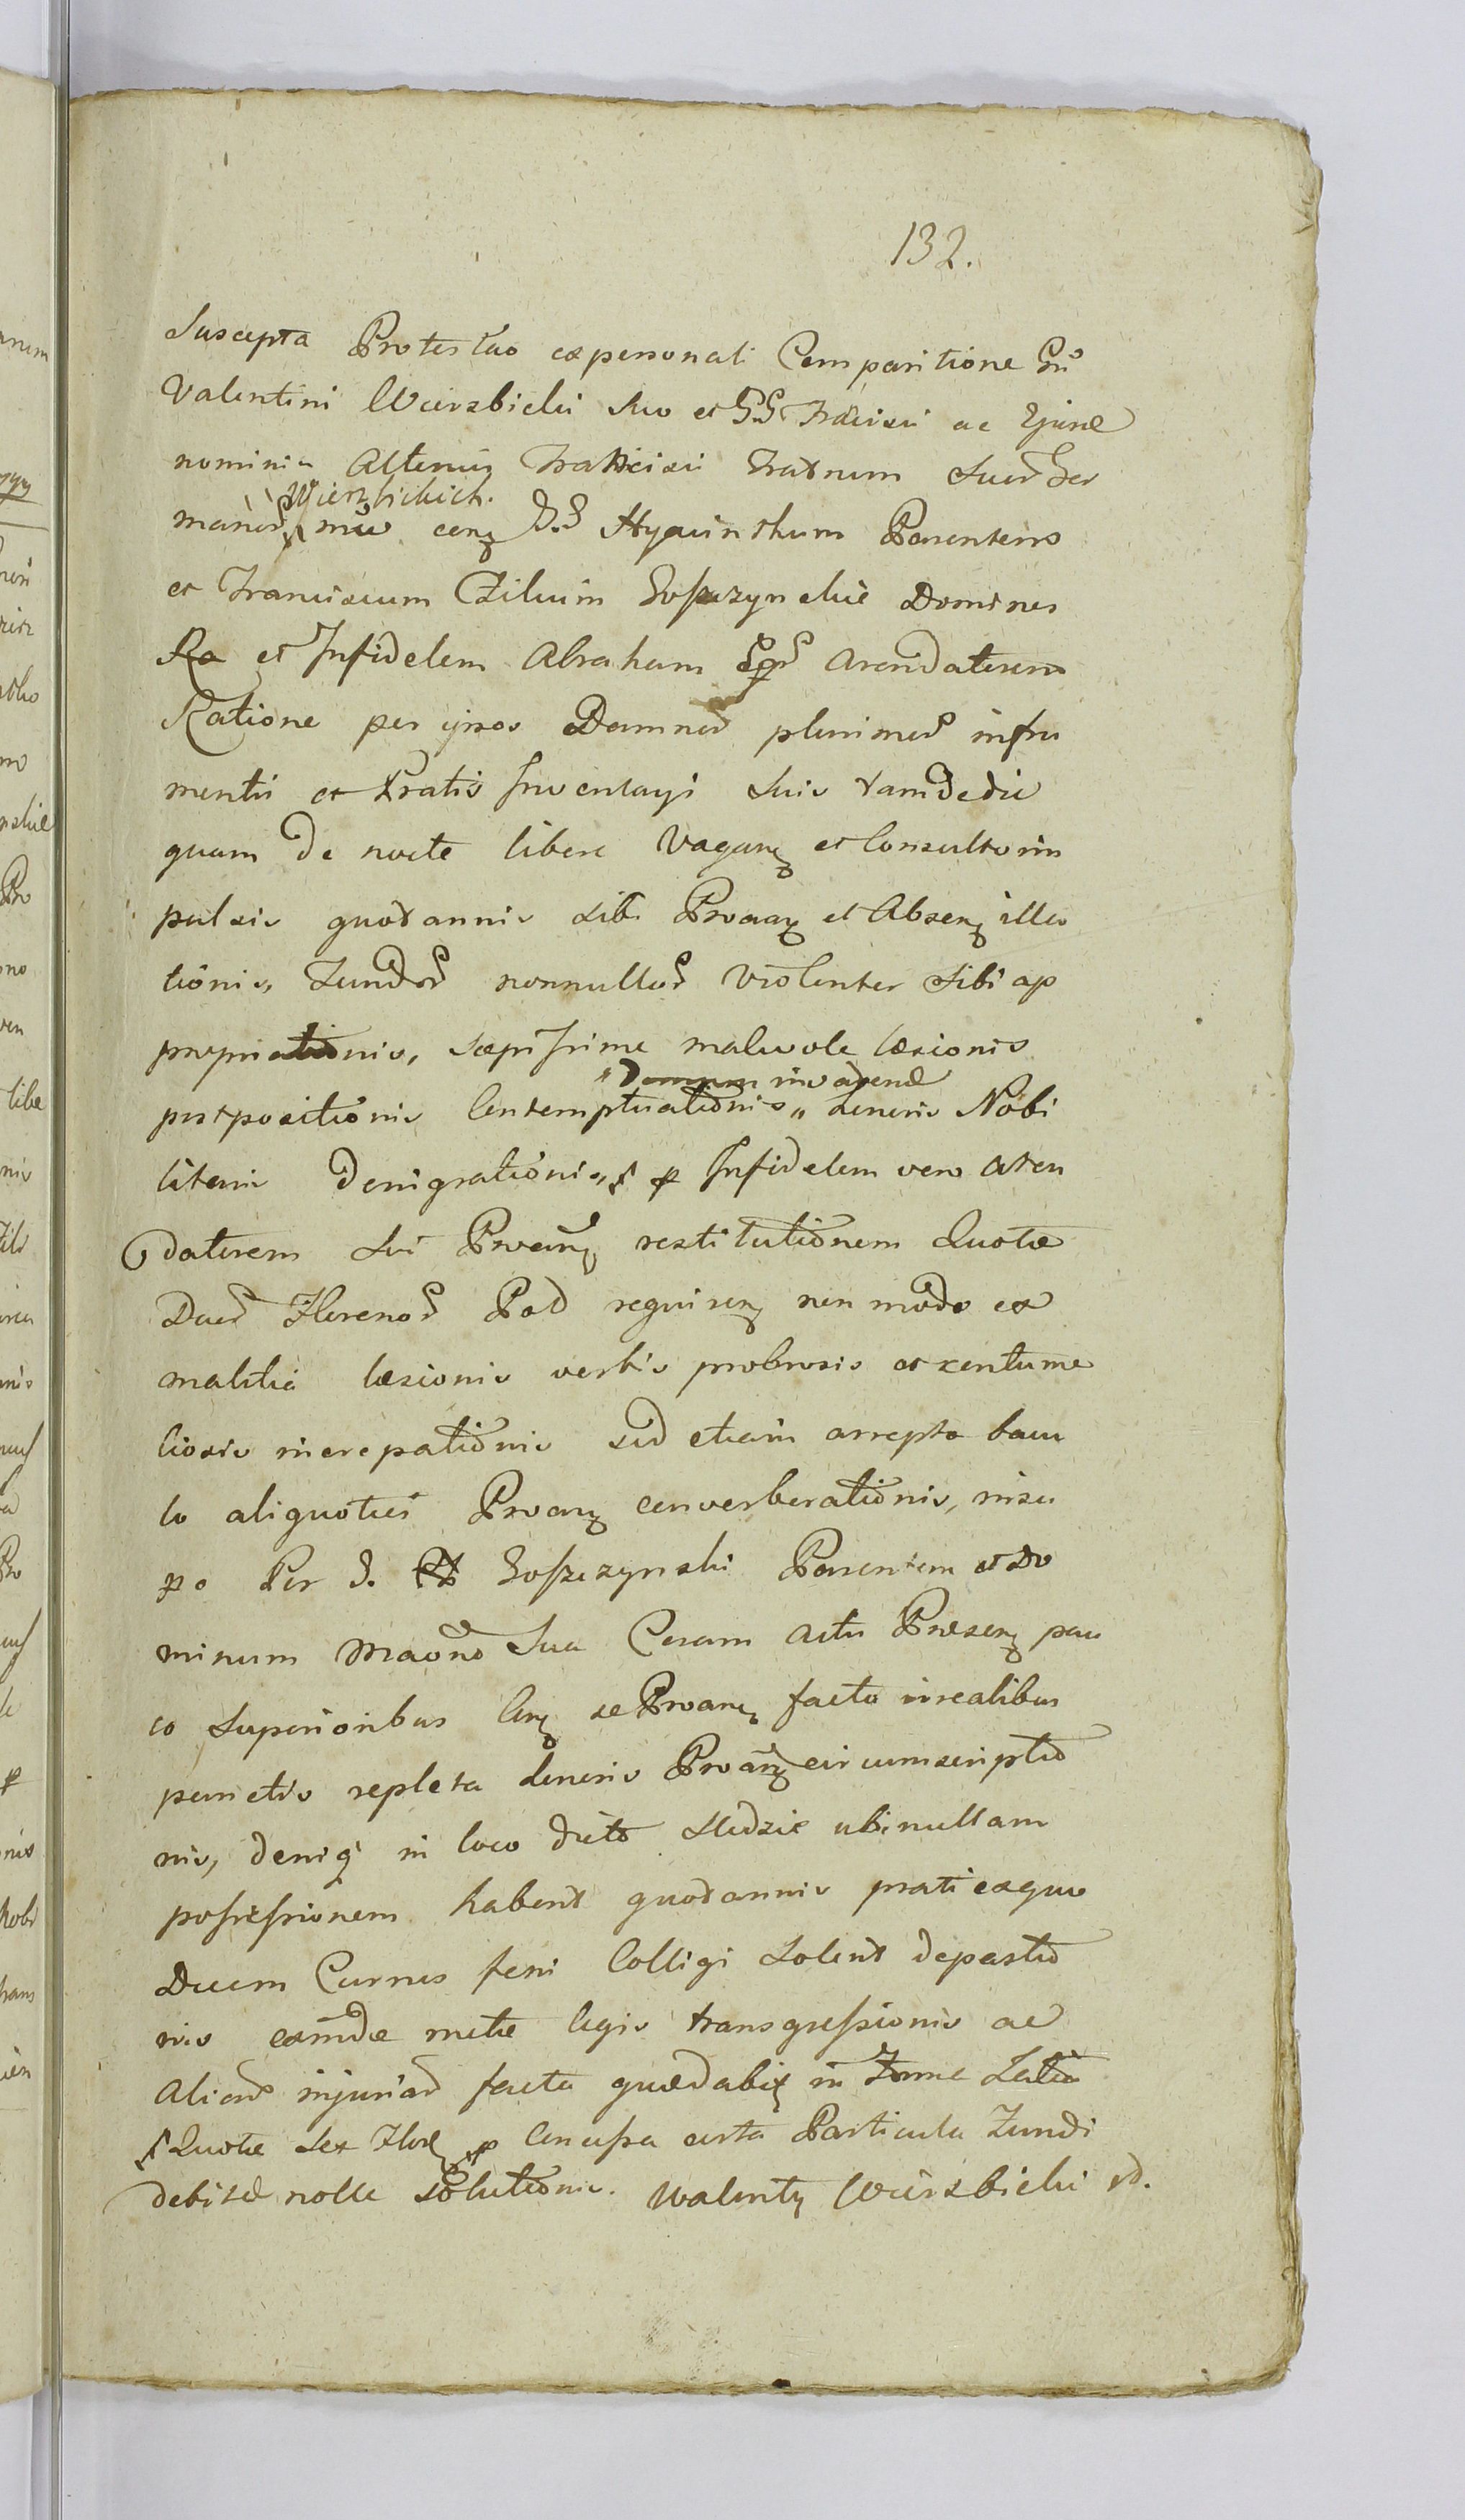 132.
Suscepta Protestao ex personali Comparitione Gsi
Valentini Wierzbicki suo et GG Fracisci ac Ejusd
nominis Alterius Francisci Fratrum Suor Ger
manor Wierzbickich. noie con G.G Hyacinthum Parentem
et Franciscum Filium Goszczynskie Dominos
et Infidelem Abraham Arendatorem
Ratione per ipsos Damnor plurimor in fru
mentis et Pratis Inventarii suis tam de die
quam de nocte libere vagan et Consulto im
pulsis quotannis sibi Proan et Absen illa
tionis, Fundor nonnullor violenter sibi ap
propriationis, sæpissime malevole læsionis
postpositionis Contemptuationis „ invadend „ honoris Nobi
litaris denigrationis, p Infidelem vero Aren
datorem sui Proan restitutionem Quotæ
Duor Florenor Pol requiren non modo ex
malitia læsionis verbis probrosis et contume
liosis increpationis sed etiam arrepto bacu
lo aliquoties Proan converberationis, insu
per Per G. Goszczynski Parentem et Do
minum Coram Actu Præsen pau
co superioribus Con se Proan facto irrealibus
punctis repleta honoris Proan circumscriptio
nis, deniq in loco dicto ubi nullam
possessionem habent quotannis prati ex quo
Duem Currus feni Colligi solent depastio
nis eamde metæ legis transgressionis ac
Alior injuriar facta quædabit in Forme Latio
Quotæ sex Flor p Concessa certa Particula Fundi
debitæ nolle solutionis. Walenty Wierzbicki